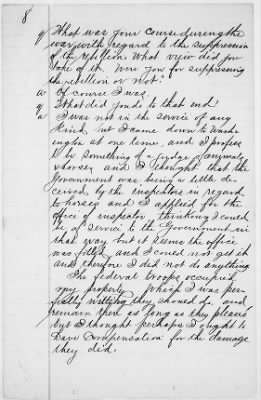 8
q What was your course during the
war, with regard to the suppression
of the rebellion. What view did you
take of it. Were you for suppressing
the rebellion or not?
a Of course I was.
q What did you do to that end
a I was not in the service of any
kind, but I came down to Wash-
ington at one time, and I profess
to be something of a judge of animals
& horses, and I thought that the
Government was being a little de-
ceived by the inspectors in regard
to horses and I applied for the
office of inspector, thinking I could
be of service to the Government in
that way but it seems the office
was filled, and I could not get it
and therefore I did not do anything.
The federal troops occupied
my property which I was per-
fectly willing they should do, and
remain there as long as they pleased
but I thought perhaps I ought to
have compensation for the damage
they did.